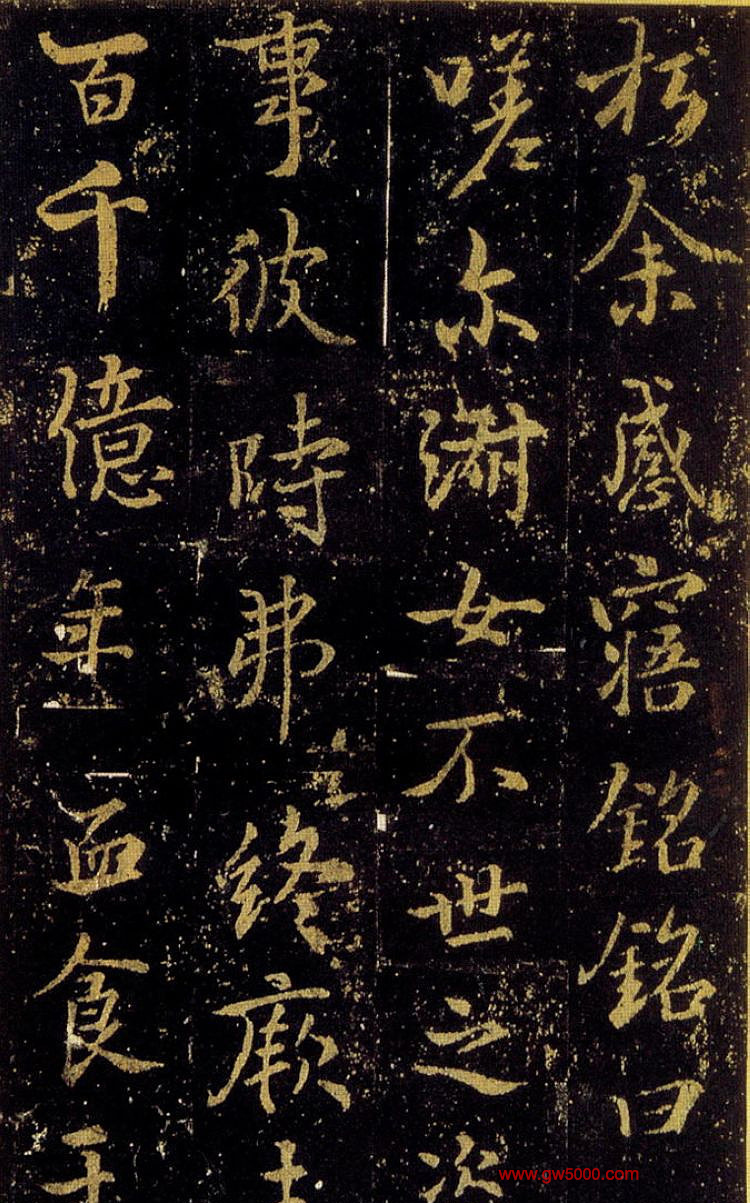 扵余感寤銘銘曰
嗟尔淑女不世之
事彼時弗終厥
百千億年血食
www.gw5000.com